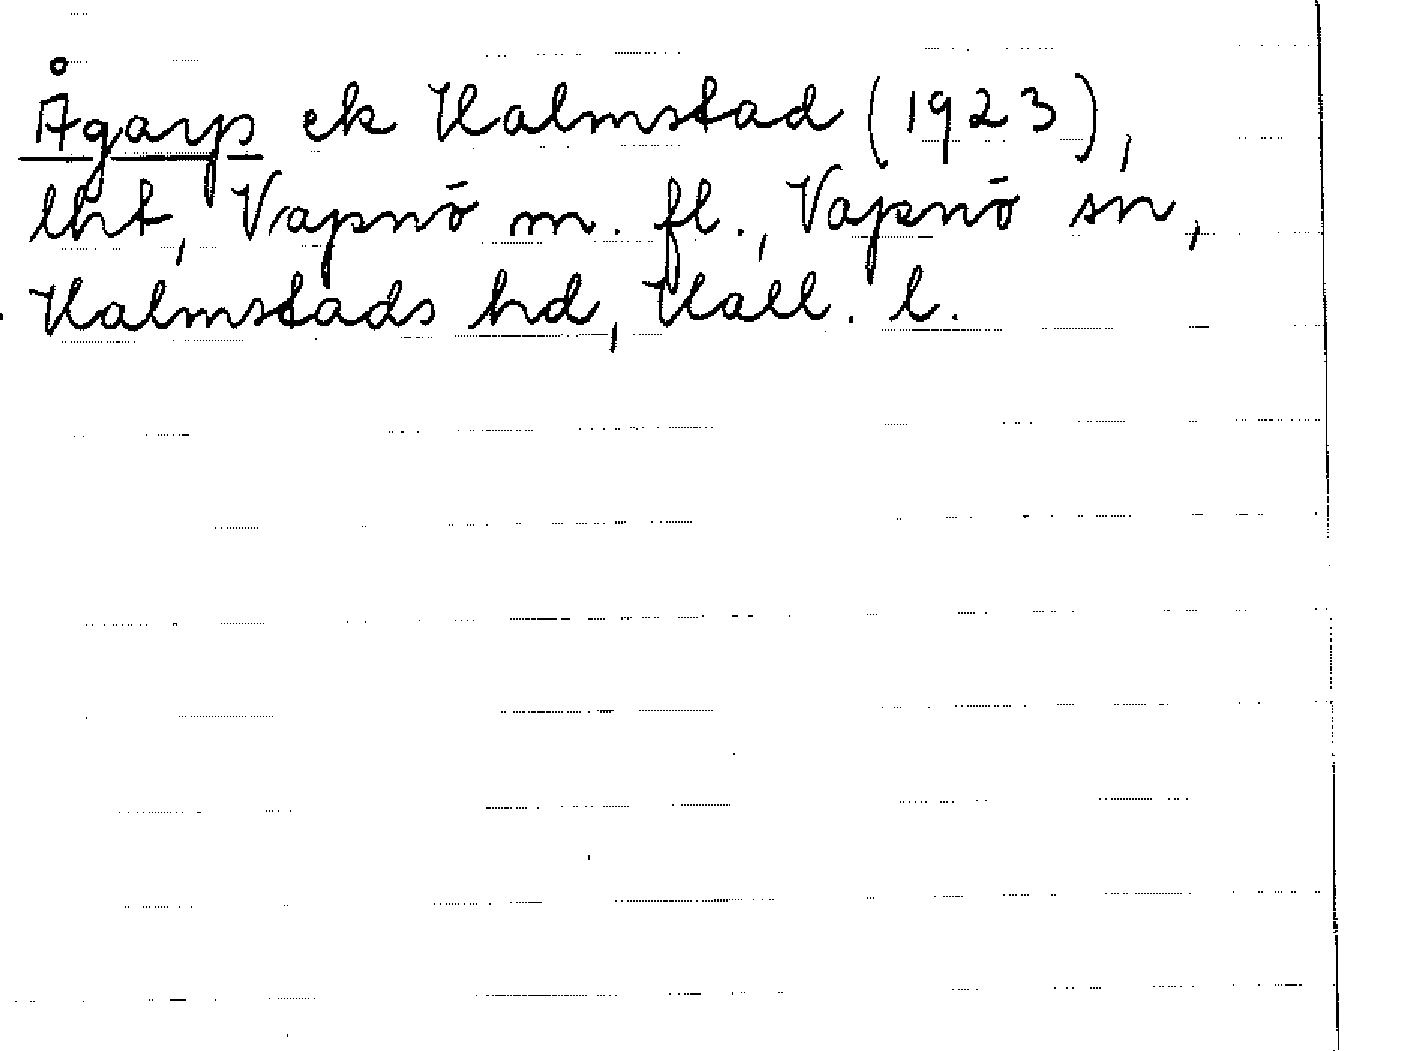 Ågarp ek Halmstad (1923),
lht, Vapnö m. fl., Vapnö sn,
Halmstads hd, Hall. l.